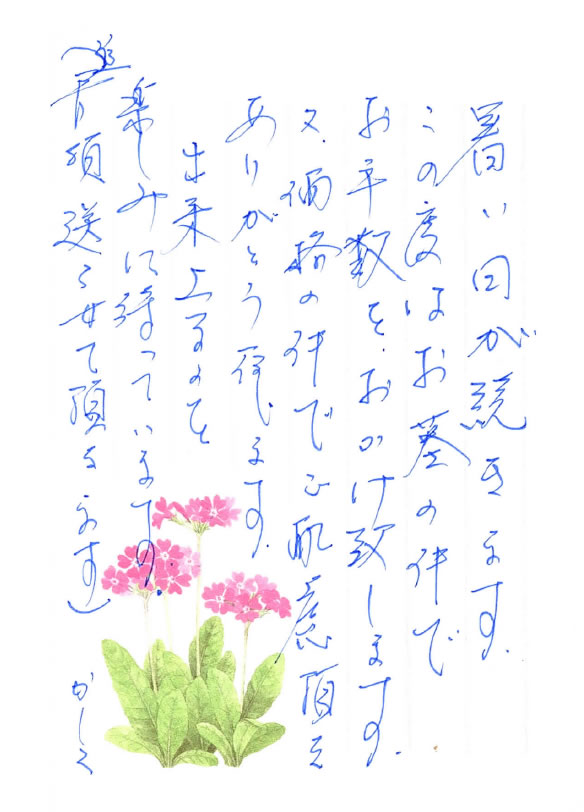 暑い日が続きます。
この度はお墓の件で
お手数をおかけ致します。
又、価格の件でご配慮頂き
ありがとう存じます。
出来上るのを
楽しみに待っています。
頂送らせて頂きます)
かしこ